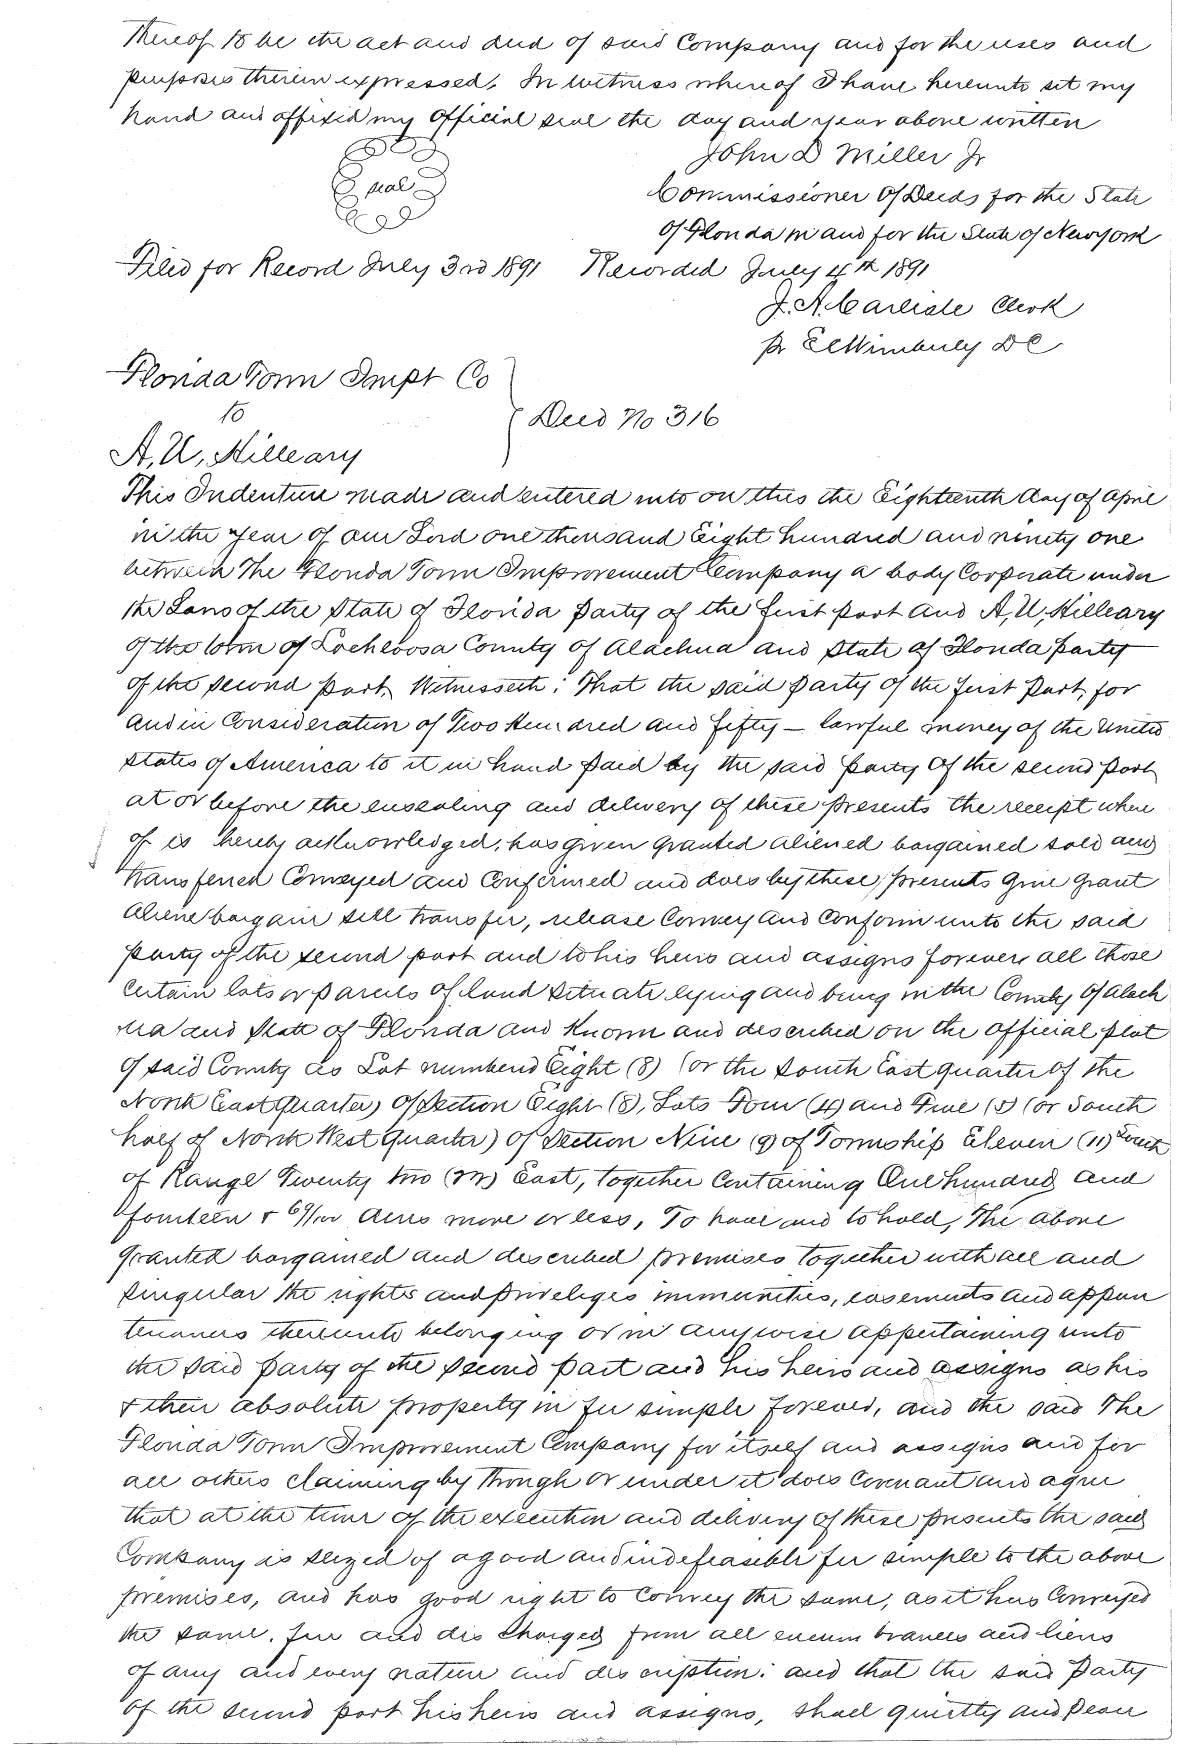 thereof to be the act and deed of said Company and for the uses and
purposes therein expressed. In witness whereof I have hereunto set my
hand and affixed my official seal the day and year above written
John D Miller Jr
seal
Commissioner of Deeds for the State
of Florida in and for the State of New york
Filed for Record July 3rd 1891 Recorded July 4th 1891
J. A. Carlisle Clerk
pr E C Wimberly D C
Florida Town Impt Co
to
Deed No 316
A, U, Hilleary
This Indenture made and entered into on this the Eighteenth day of April
in the year of our Lord one thousand Eight hundred and ninety one
between The Florida Town Improvement Company a body Corporate under
the Laws of the State of Florida Party of the first part and A, U, Hilleary
of the town of Lochloosa County of Alachua and State of Florida party
of the second part, Witnesseth: That the said party of the first Part, for
and in Consideration of Two Hundred and fifty – lawful money of the United
States of America to it in hand paid by the said party of the second part
at or before the ensealing and delivery of these presents the receipt where
of is hereby acknowledged, has given granted aliened bargained sold and
transferred Conveyed and Confirmed and does by these presents give grant
aliene bargain sell transfer, release Convey and Confirm unto the said
party of the second part and to his heirs and assigns forever all those
Certain lots or parcels of land situate lying and being in the County of Alach
ua and State of Florida and Known and described on the official plat
of said County as Lot numbered Eight (8) (or the South East quarter of the
North East Quarter) of Section Eight (8), Lots Four (4) and Five (5) (or South
half of North West Quarter) of Section Nine (9) of Township Eleven (11) South
of Range Twenty two (22) East, together Containing One hundred and
fourteen + 69/100 Acres more or less, To have and to hold, The above
granted bargained and described premises together with all and
singular the rights and priveliges immunities, easements and appur
tenances thereunto belonging or in anywise appertaining unto
the said party of the second part and his heirs and assigns as his
+ their absolute property in fee simple forever, and the said The
Florida Town Improvement Company for itself and assigns and for
all others claiming by through or under it does Covenant and agree
that at the time of the execution and delivery of these presents the said
Company is seized of a good and indefeasible fee simple to the above
premises, and has good right to convey the same, as it has Conveyed
the same. free and dis charged from all encum brances and liens
of any and every nature and discription: and that the said Party
of the second part his heirs and assigns, shall quietly and peace